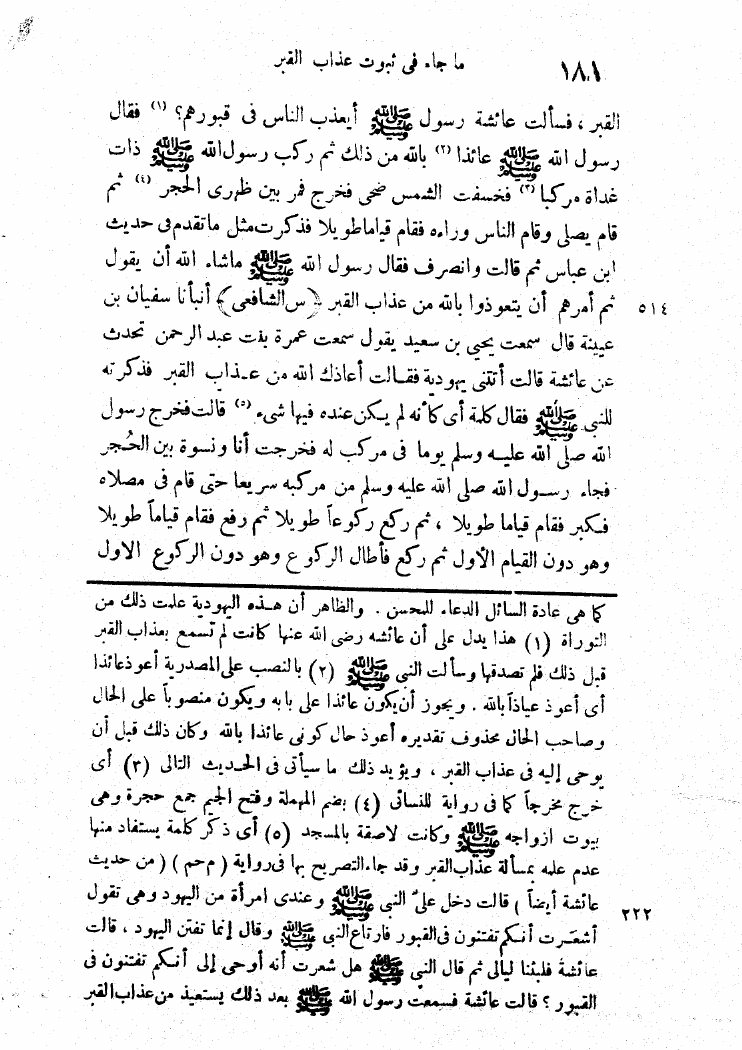 ١٨١ ما جاء فى ثبوت عذاب القبر
القبر، فسألت عائشة رسول ﷺ أيعذب الناس فى قبورهم؟ (١) فقال
رسول الله ﷺ عائذا (٢) بالله من ذلك ثم ركب رسول الله ﷺ ذات
غداة مركبا (٣) فخسفت الشمس ضحى فخرج فمر بين ظهرى الحجر (٤) ثم
قام يصلى وقام الناس وراءه فقام قياما طويلا فذكرت مثل ما تقدم فى حديث
ابن عباس ثم قالت وانصرف فقال رسول الله ﷺ ماشاء الله أن يقول
٥١٤ ثم أمرهم أن يتعوذوا بالله من عذاب القبر (س الشافعى) أنبأنا سفيان بن
عيينة قال سمعت يحيى بن سعيد يقول سمعت عمرة بنت عبد الرحمن تحدث
عن عائشة قالت أتتنى يهودية فقالت أعاذك الله من عذاب القبر فذكرته
للنبى ﷺ فقال كلمة أى كأنه لم يكن عنده فيها شىء (٥) قالت فخرج رسول
الله صلى الله عليه وسلم يوما فى مركب له فخرجت أنا ونسوة بين الحُجر
فجاء رسول الله صلى الله عليه وسلم من مركبه سريعا حتى قام فى مصلاه
فكبر فقام قياما طويلا، ثم ركع ركوعاً طويلا ثم رفع فقام قياماً طويلا
وهو دون القيام الأول ثم ركع فأطال الركوع وهو دون الركوع الاول
كما هى عادة السائل الدعاء للمحسن. والظاهر أن هذه اليهودية علمت ذلك من
التوراة (١) هذا يدل على أن عائشه رضى الله عنها كانت لم تسمع بعذاب القبر
قبل ذلك فلم تصدقها وسألت النبى ﷺ (٢) بالنصب على المصدرية أعوذ عائذا
أى أعوذ عياذاً بالله. ويجوز أن يكون عائذا على بابه ويكون منصوباً على الحال
وصاحب الحال محذوف تقديره أعوذ حال كونى عائذا بالله وكان ذلك قبل أن
يوحى إليه فى عذاب القبر، ويؤيد ذلك ما سيأتى فى الحديث التالى (٣) أى
خرج مخرجاً كما فى رواية للنسائى (٤) بضم المهملة وفتح الجيم جمع حجرة وهى
بيوت ازواجه ﷺ وكانت لاصقة بالمسجد (٥) أى ذكر كلمة يستفاد منها
عدم علمه بمسألة عذاب القبر وقد جاء التصريح بها فى رواية (م حم) (من حديث
٢٢٢ عائشة أيضاً) قالت دخل علىّ النبى ﷺ وعندى امرأة من اليهود وهى تقول
أشعرت أنكم تفتنون فى القبور فارتاع النبى ﷺ وقال إنما تفتن اليهود، قالت
عائشة فلبثنا ليالى ثم قال النبى ﷺ هل شعرت أنه أوحى إلى أنكم تفتنون فى
القبور؟ قالت عائشة فسمعت رسول الله ﷺ بعد ذلك يستعيذ من عذاب القبر